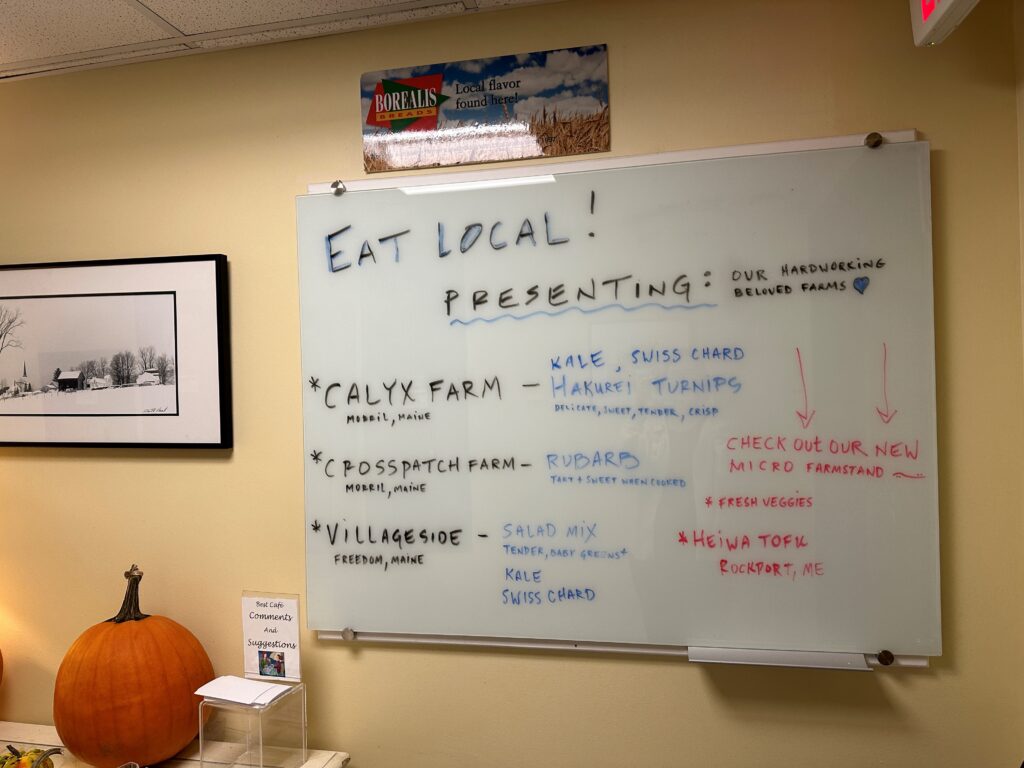 BOREALIS
BREADS
Local flavor
found here!
EAT LOCAL!
PRESENTING:
OUR HARDWORKING
BELOVED FARMS
*CALYX FARM -
MORRIL, MAINE
KALE, SWISS CHARD
HAKUREI TURNIPS
DELICATE, SWEET, TENDER, CRISP
*CROSSPATCH FARM -
MORRIL, MAINE
RUBARB
TART + SWEET WHEN COOKED
*VILLAGESIDE -
FREEDOM, MAINE
SALAD MIX
TENDER, BABY GREENS +
KALE
SWISS CHARD
CHECK OUT OUR NEW
MICRO FARMSTAND
* FRESH VEGGIES
*HEIWA TOFU
ROCKPORT, ME
Best Café
Comments
And
Suggestions